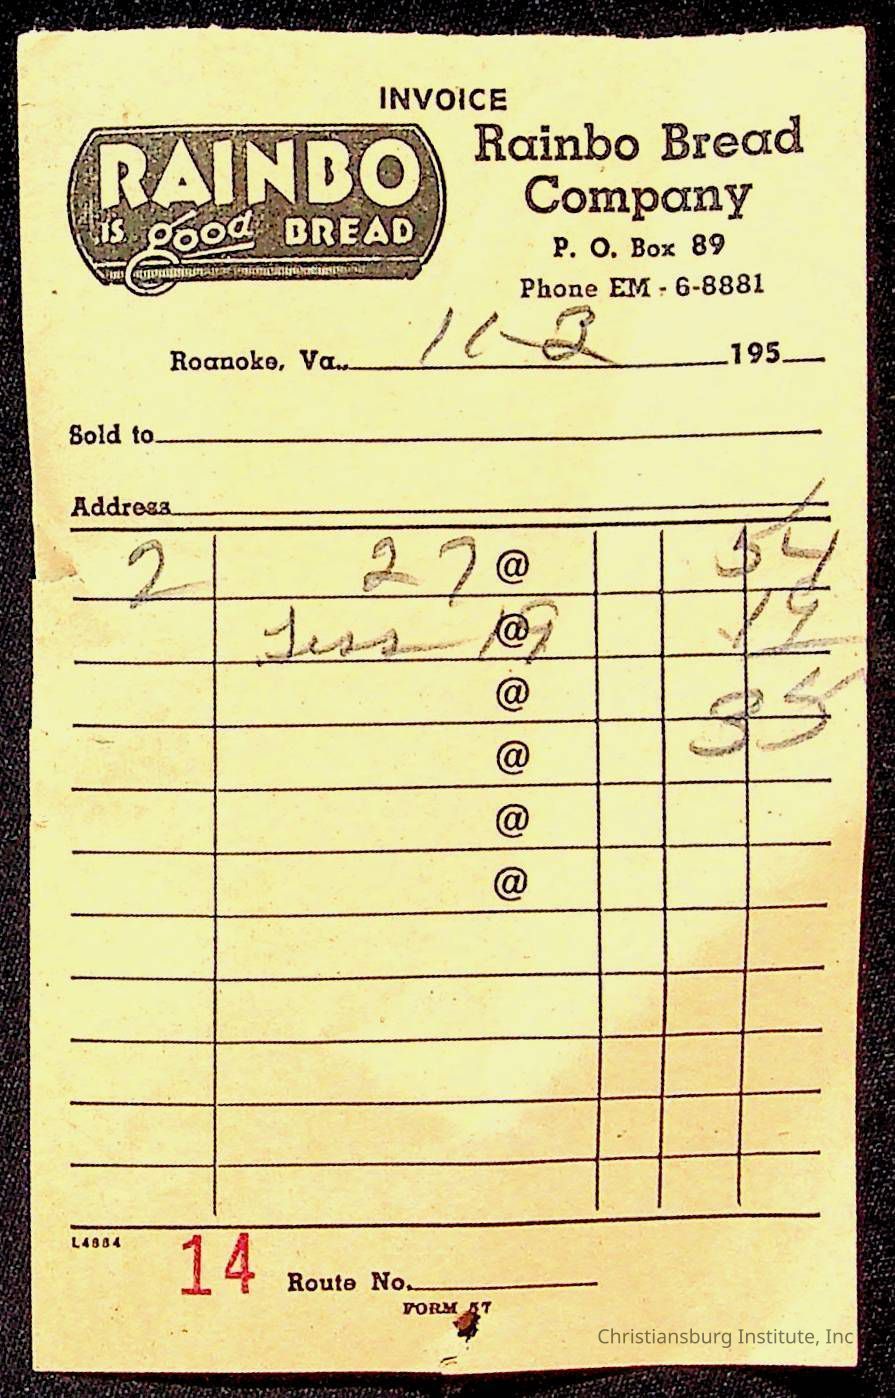 INVOICE
RAINBO
IS good BREAD
Rainbo Bread
Company
P. O. Box 89
Phone EM - 6-8881
Roanoke, Va., 11-3 195
Sold to
Address
2 27 @ 54
Less 19 @ 19
@ 35
@
@
@
L4884
14 Route No.
FORM 57
Christiansburg Institute, Inc